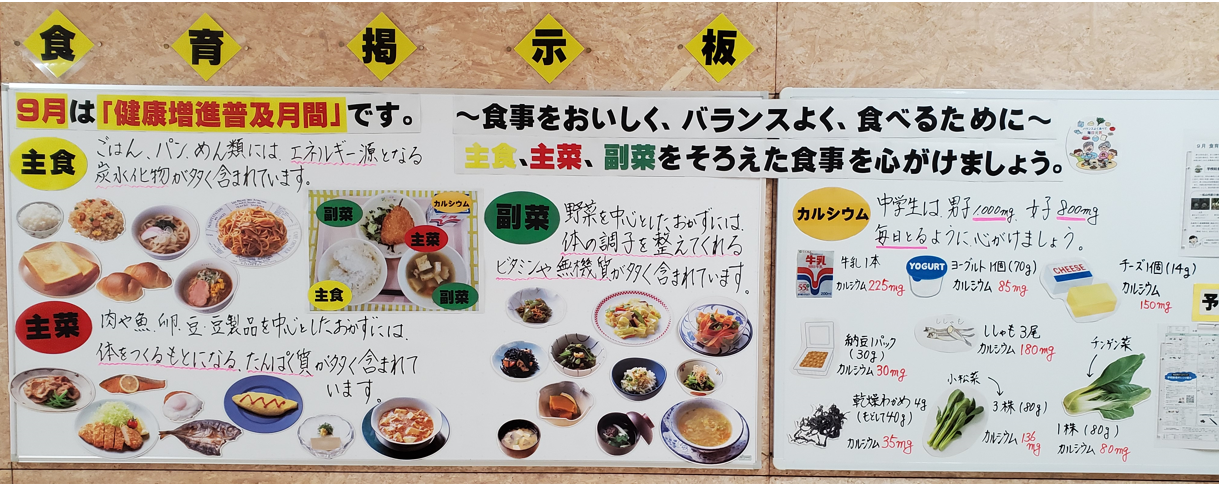 食育掲示板
9月は「健康増進普及月間」です。
～食事をおいしく、バランスよく、食べるために～
主食、主菜、副菜をそろえた食事を心がけましょう。
主食
ごはん、パン、めん類には、エネルギー源となる
炭水化物が多く含まれています。
副菜
カルシウム
主菜
主食
副菜
主菜
肉や魚、卵、豆・豆製品を中心としたおかずには、
体をつくるもとになる、たんぱく質が多く含まれて
います。
副菜
野菜を中心としたおかずには、
体の調子を整えてくれる
ビタミンや無機質が多く含まれています。
カルシウム
中学生は、男子1000mg、女子800mg
毎日とるように心がけましょう。
牛乳
牛乳1本
カルシウム225mg
YOGURT
ヨーグルト1個(70g)
カルシウム 85mg
CHEESE
チーズ1個(14g)
カルシウム
150mg
納豆1パック
(30g)
カルシウム30mg
ししゃも3尾
カルシウム180mg
チンゲン菜
小松菜
3株(80g)
カルシウム136mg
乾燥わかめ4g
(もどして40g)
カルシウム35mg
1株(80g)
カルシウム80mg
予